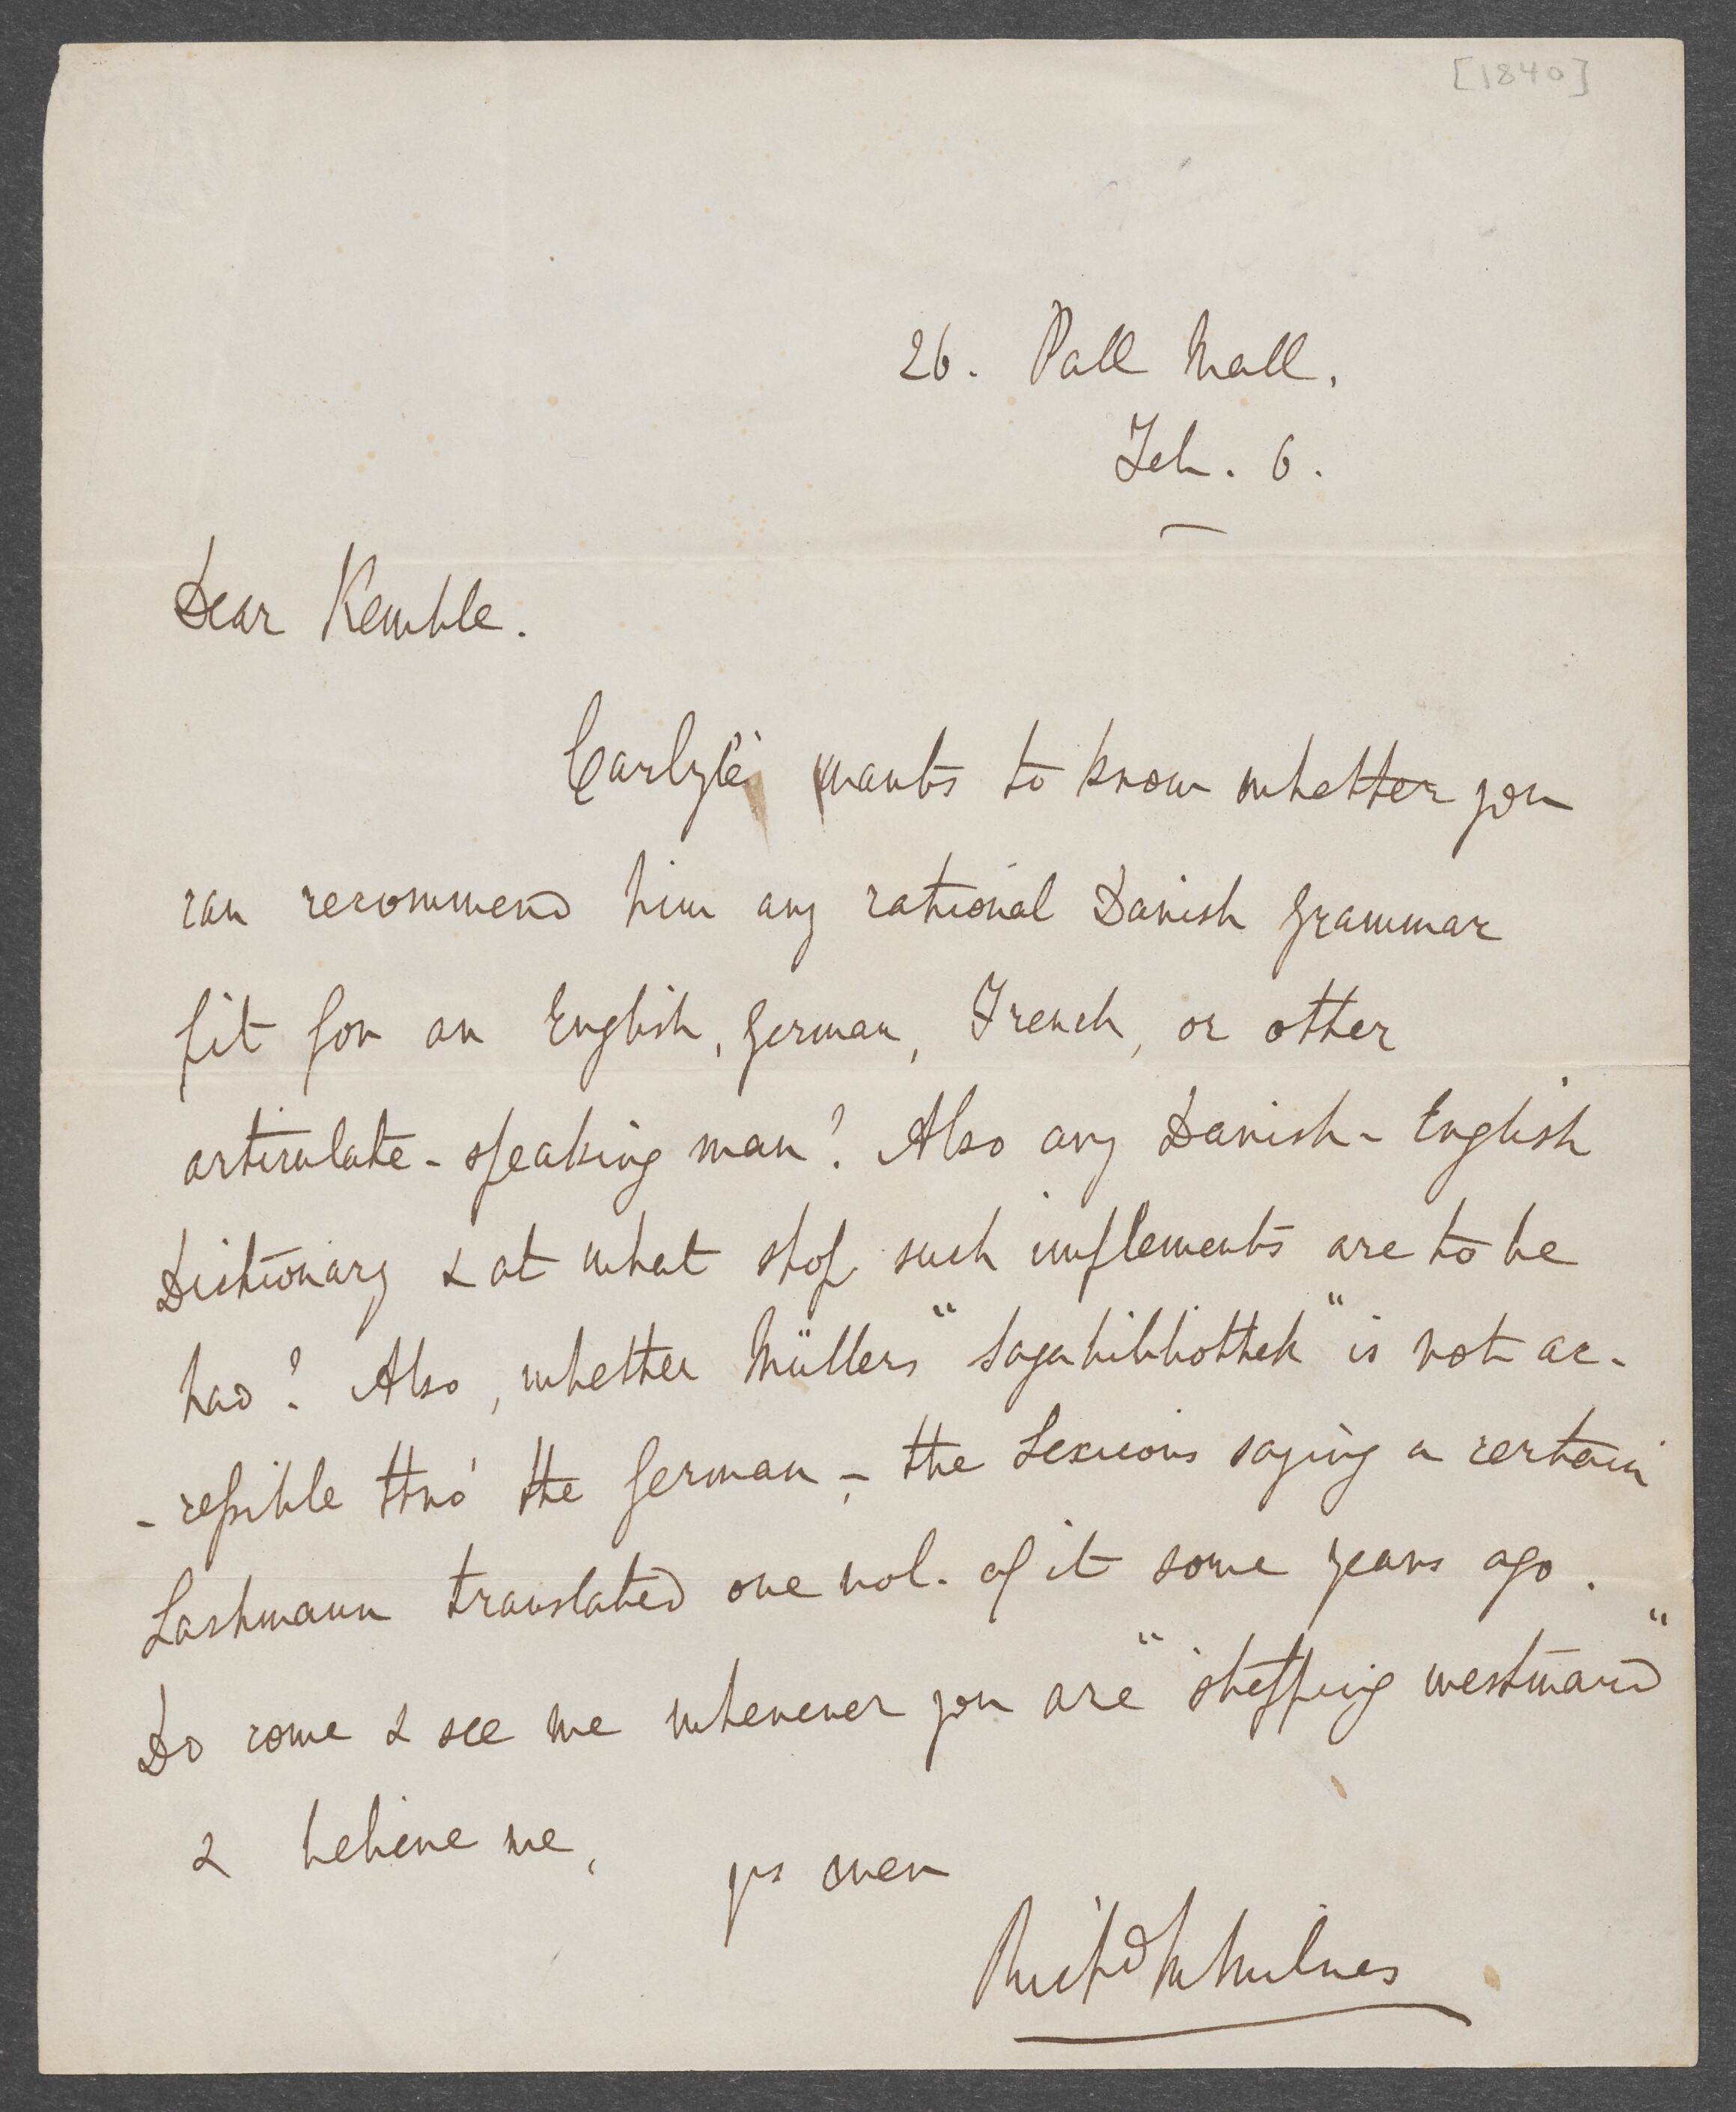 [1840]
26. Pall Mall.
Feb. 6.
Dear Kemble.
Carlyle wants to know whether you
can recommend him any rational Danish Grammar
fit for an English, German, French, or other
articulate-speaking man? Also any Danish-English
Dictionary & at what shop such implements are to be
had? Also, whether Müllers "Sagabibliothek" is not ac-
-cessible thro' the German, - the Lexicons saying a certain
Lachmann translated one vol. of it some years ago.
Do come & see me whenever you are "stepping westward"
& believe me, yrs ever
Richd M Milnes